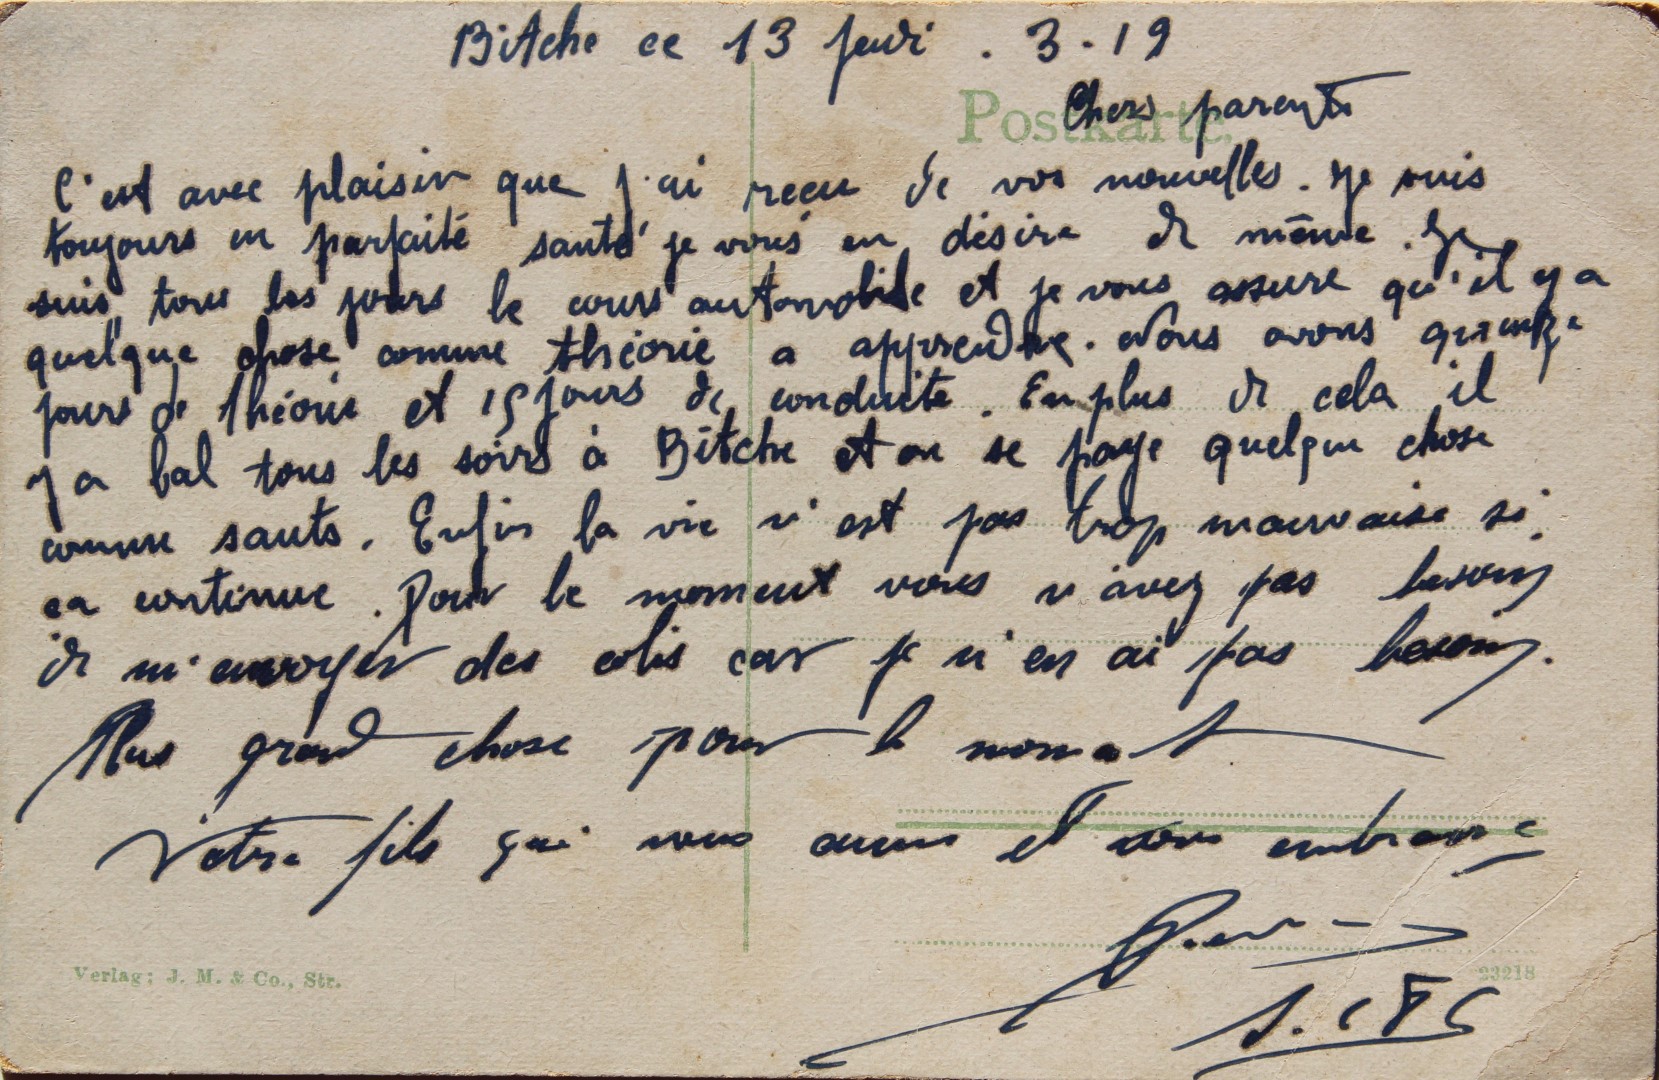 Bitche ce 13 jeudi . 3 . 19
Postkarte.
Chers parents
C'est avec plaisir que j'ai reçu de vos nouvelles. Je suis
toujours en parfaite santé je vous en désire de même. Je
suis tous les jours le cours automobile et je vous assure qu'il y a
quelque chose comme théorie a apprendre. Nous avons quinze
jours de théorie et 15 jours de conduite. En plus de cela il
y a bal tous les soirs à Bitche et on se paye quelque chose
comme sauts. Enfin la vie n'est pas trop mauvaise si
ca continue. Pour le moment vous n'avez pas besoin
de m'envoyer des colis car je n'en ai pas besoin.
Plus grand chose pour le moment
Votre fils qui vous aime et vous embrasse
Verlag: J. M. & Co., Str.
23218